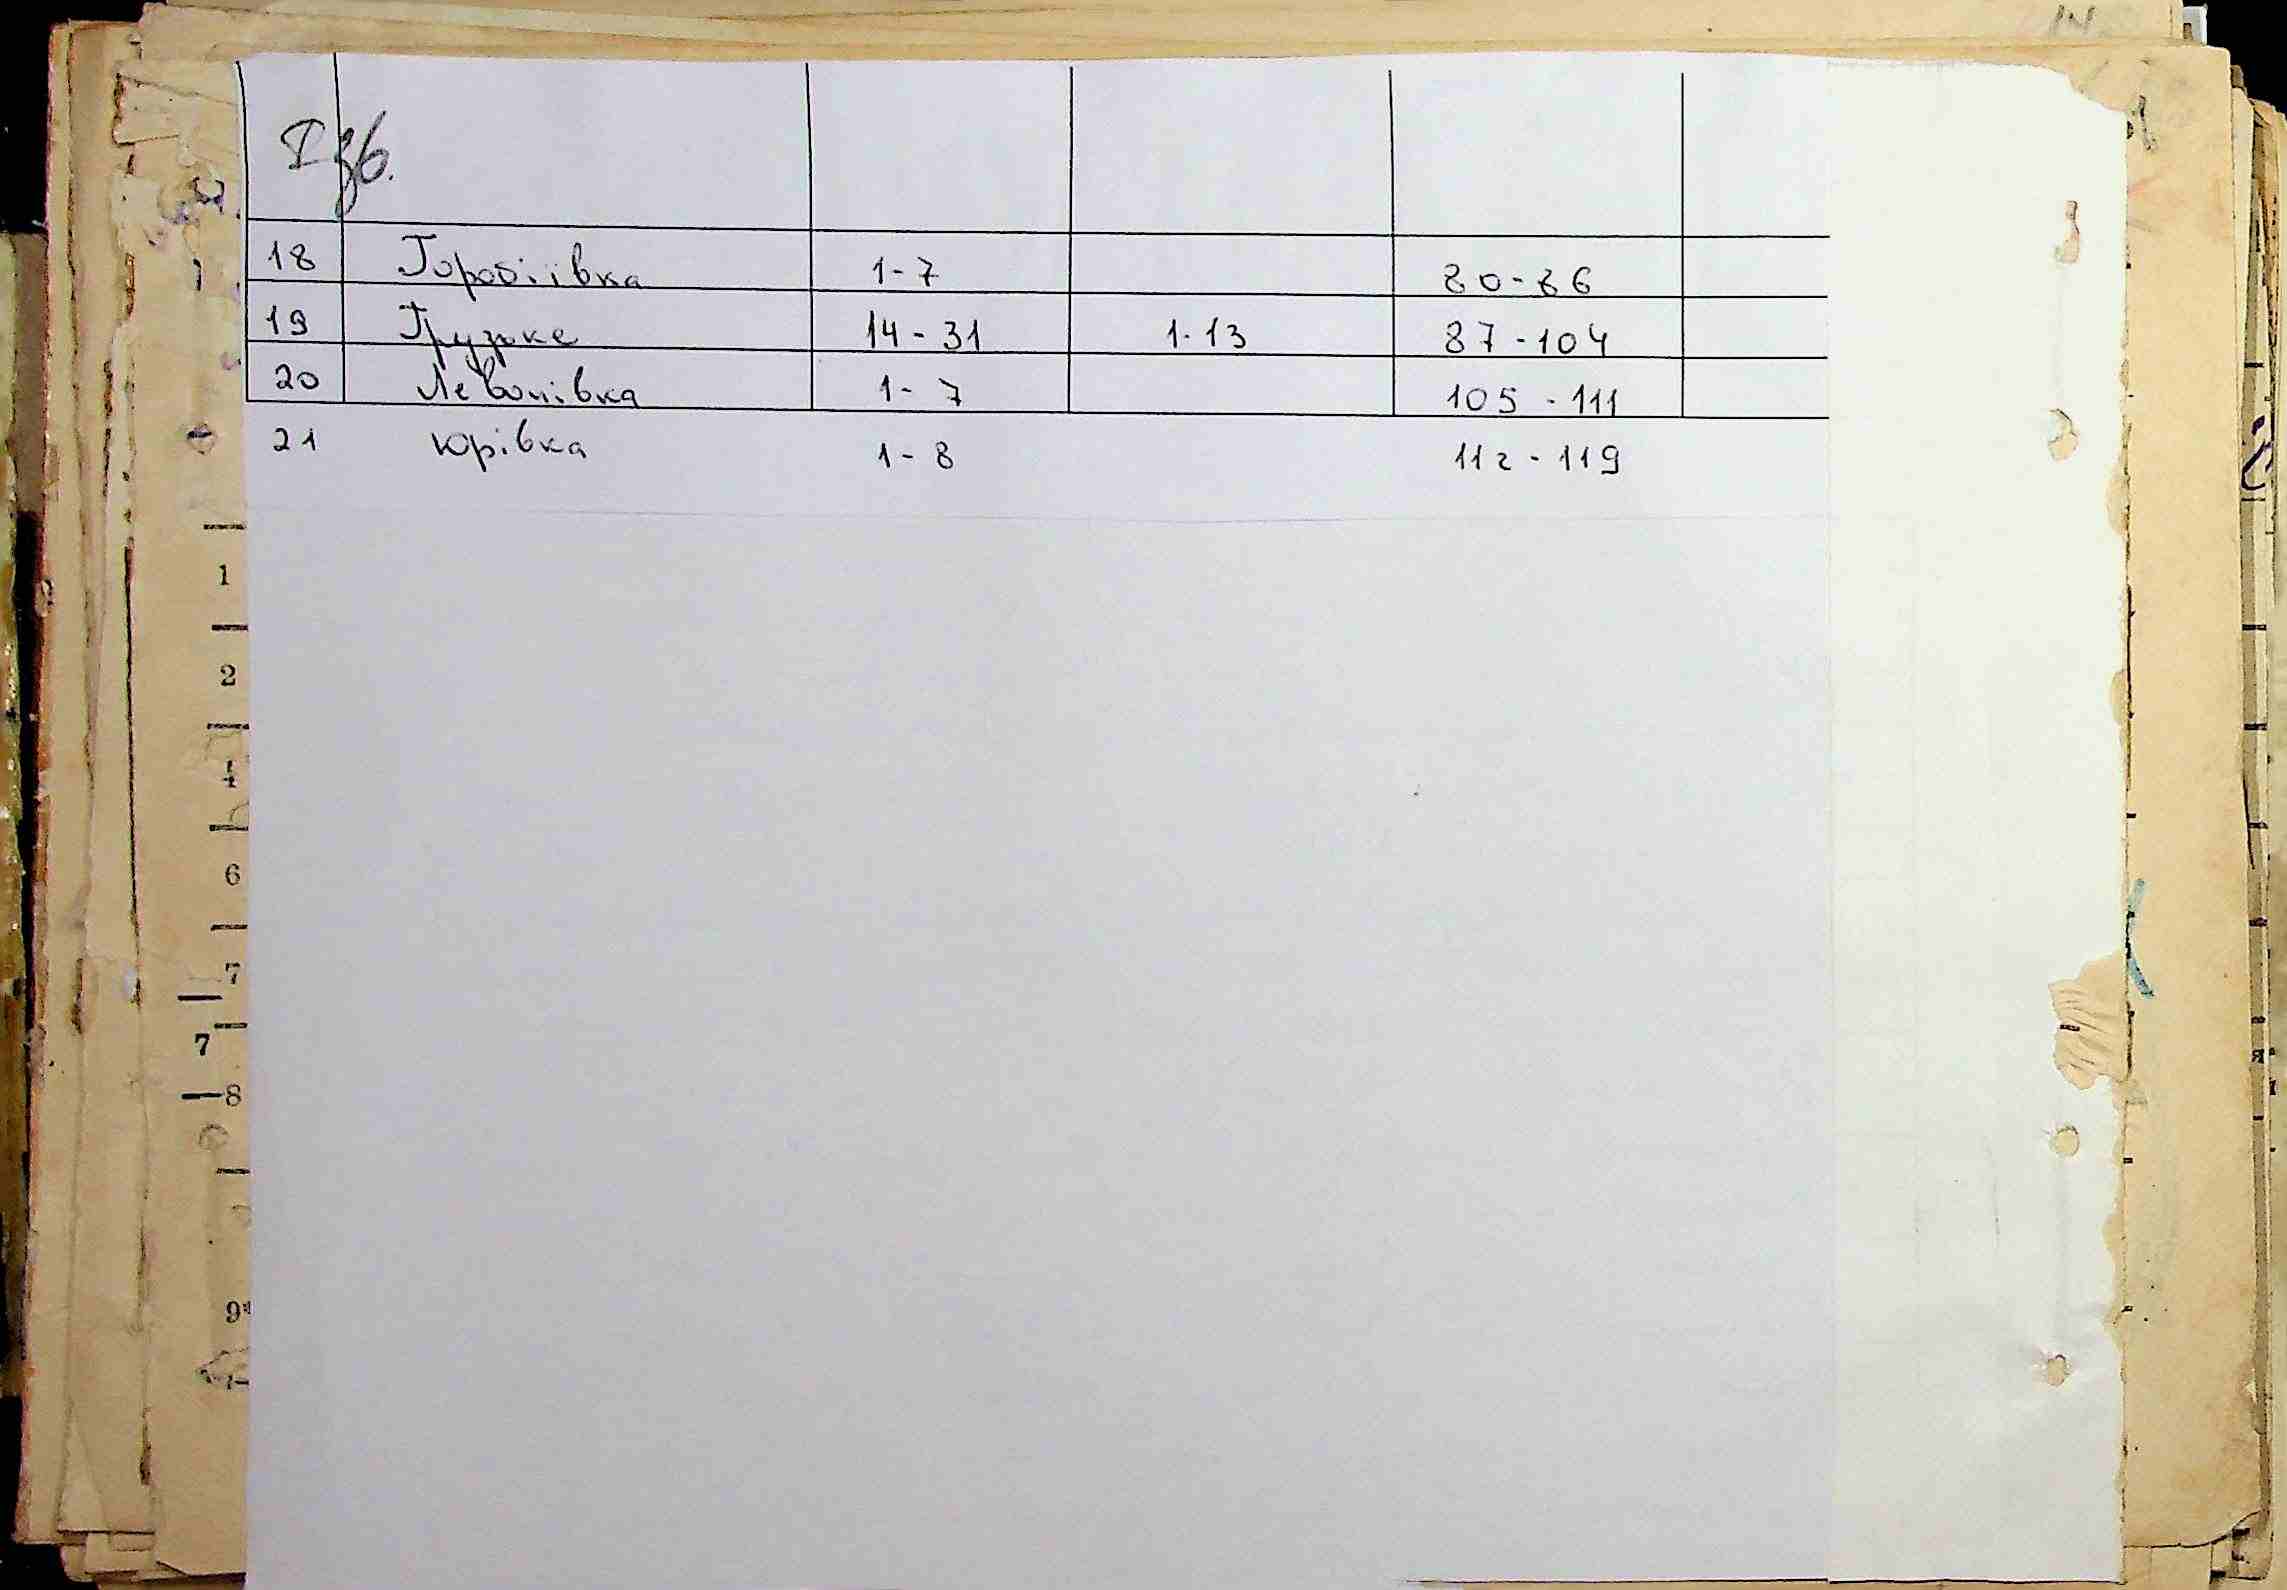 I зб.
18 Горобіївка 1-7 80-86
19 Грузьке 14-31 1-13 87-104
20 Леонівка 1-7 105-111
21 Юрівка 1-8 112-119
1
2
4
6
7
7
8
9